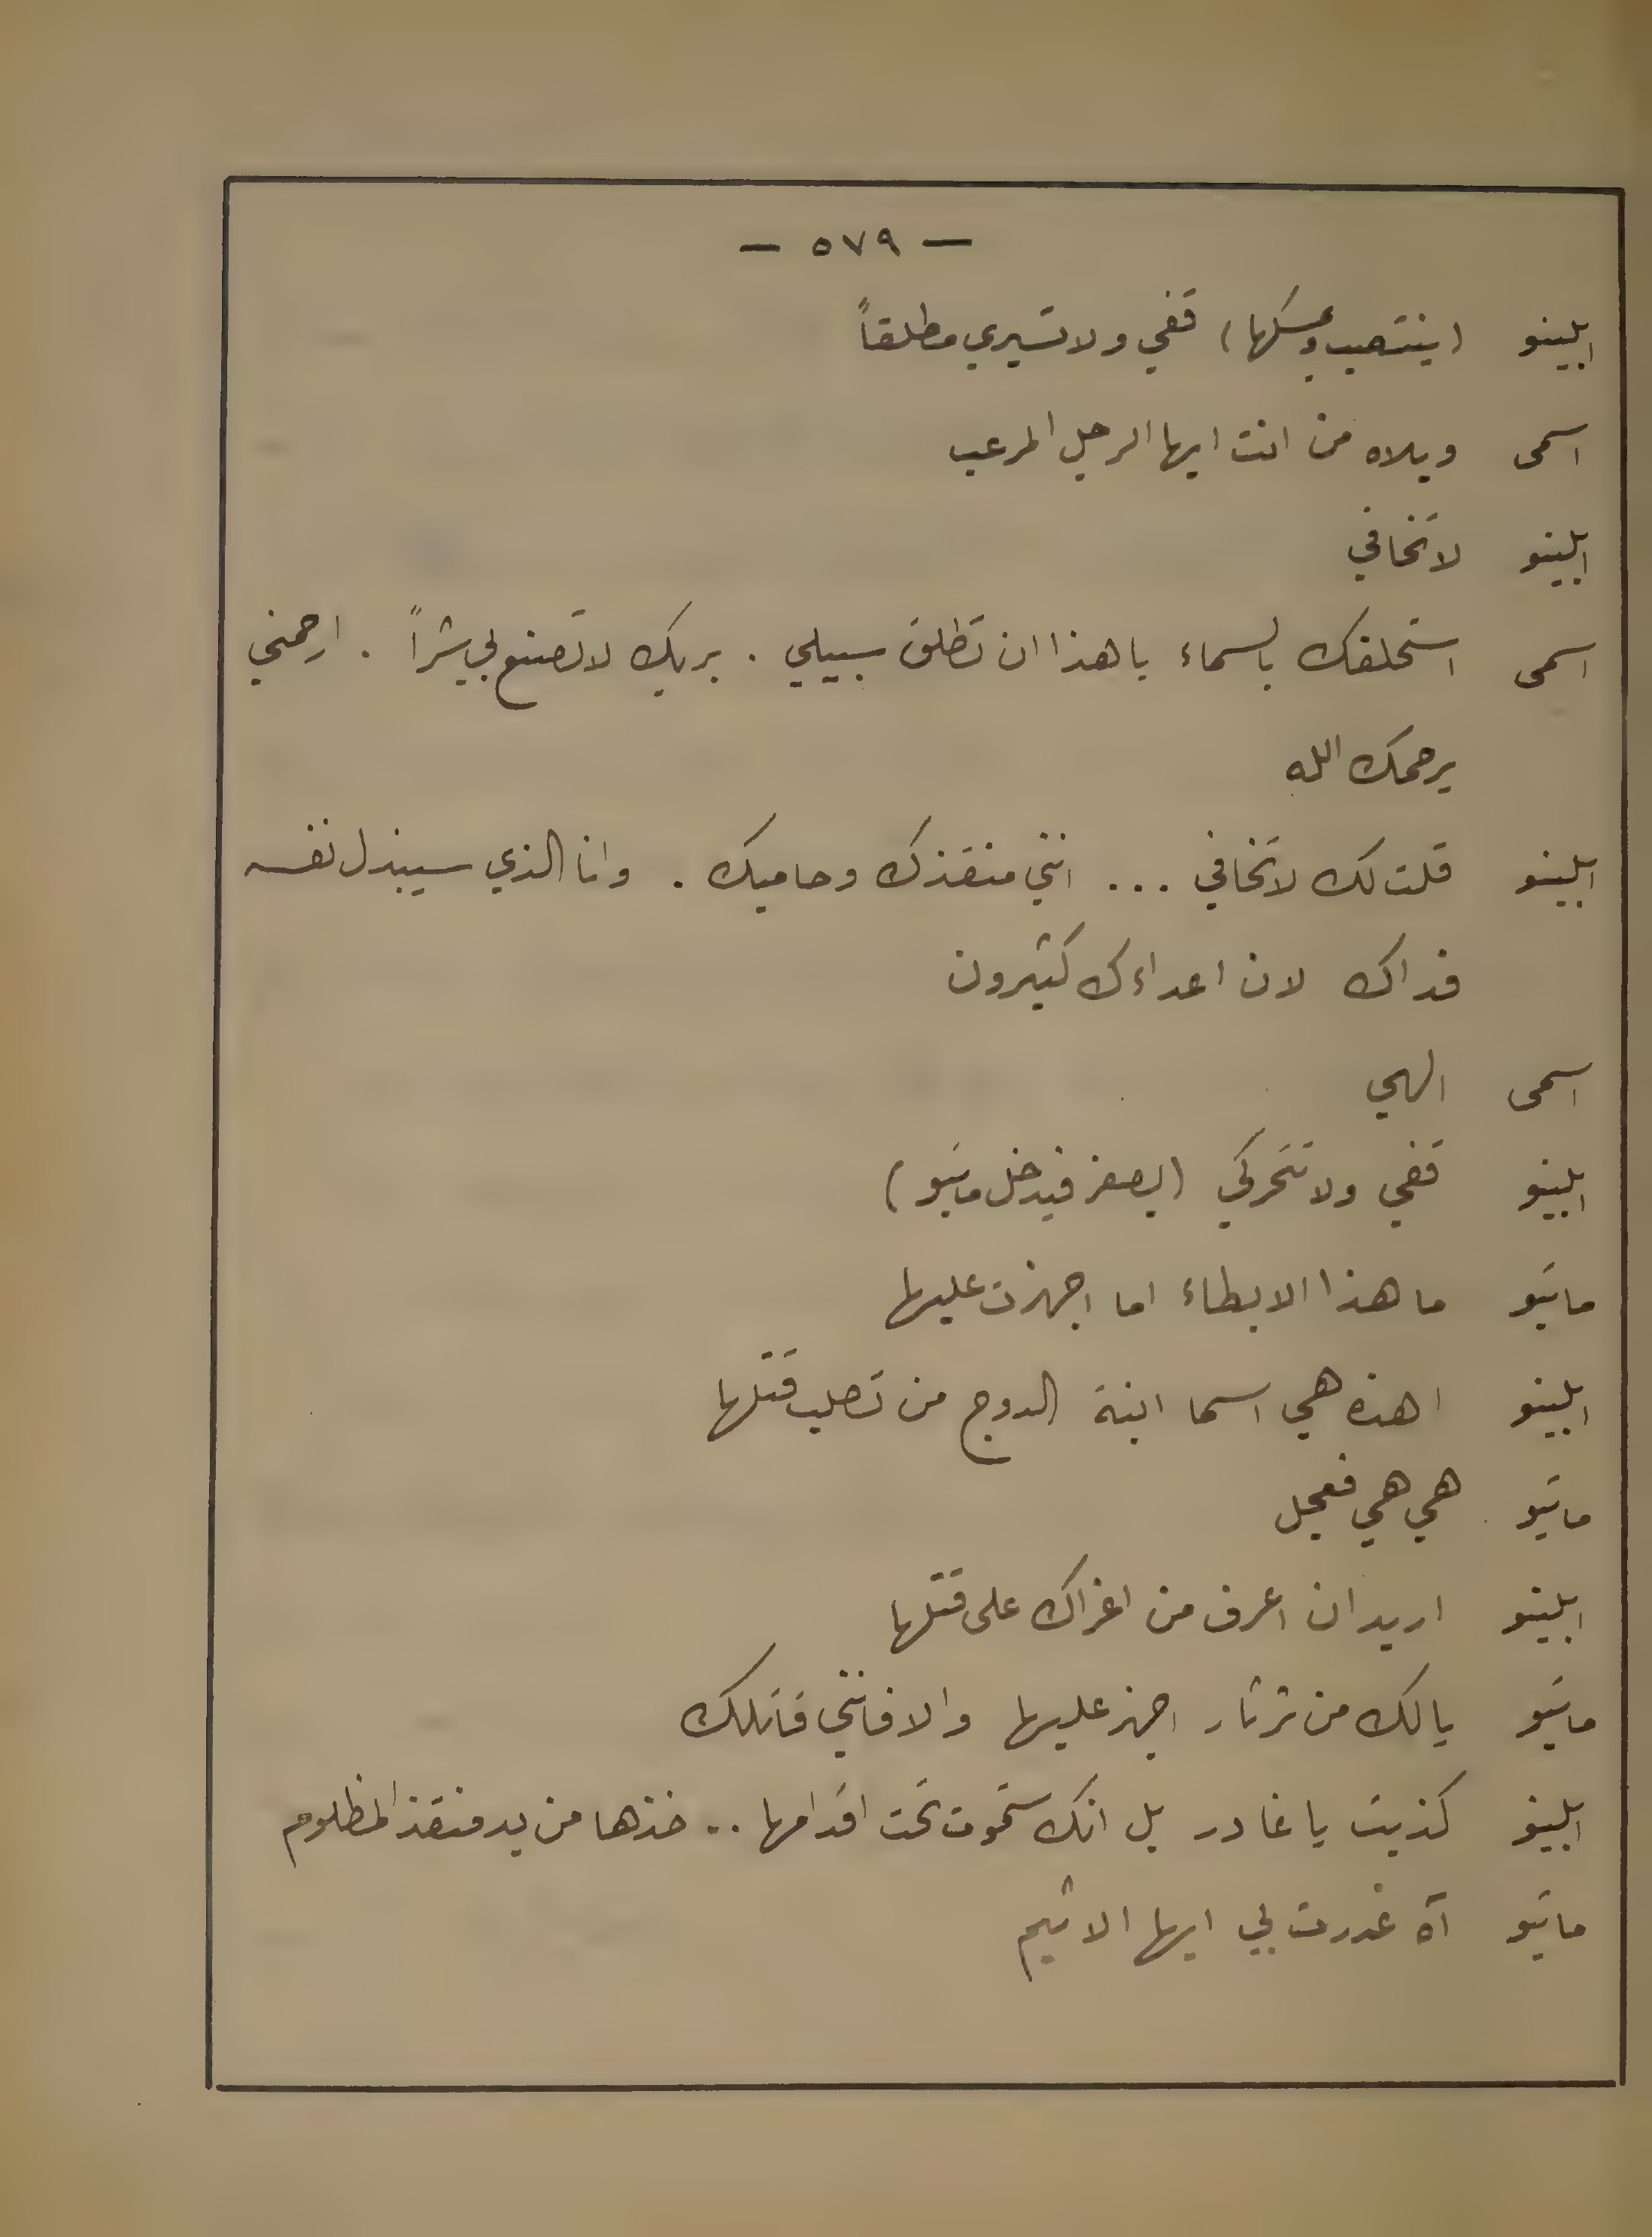 — ٥٧٩ —
ابلينو (ينتصب ويمسكها) قفي ولا تسيري مطلقاً
اسمى ويلاه من انت ايها الرجل المرعب
ابلينو لا تخافي
اسمى استحلفك بالسماء يا هذا ان تطلق سبيلي . بربك لا تصنع بي شراً . ارحمني
يرحمك الله
ابلينو قلت لك لا تخافي ... انني منقذك وحاميك . وانا الذي سيبذل نفسه
فداك لان اعداءك كثيرون
اسمى الهي
ابلينو قفي ولا تتحركي (يصفر فيدخل ماتيو)
ماتيو ما هذا الابطاء اما اجهزت عليها
ابلينو اهذه هي اسما ابنة الدوج من تطلب قتلها
ماتيو هي هي فعجل
ابلينو اريد ان اعرف من اغراك على قتلها
ماتيو يا لك من ثرثار اجهز عليها والا فانني قاتلك
ابلينو كذبت يا غادر بل انك ستموت تحت اقدامها .. خذها من يد منقذ المظلوم
ماتيو آه غدرت بي ايها الاثيم